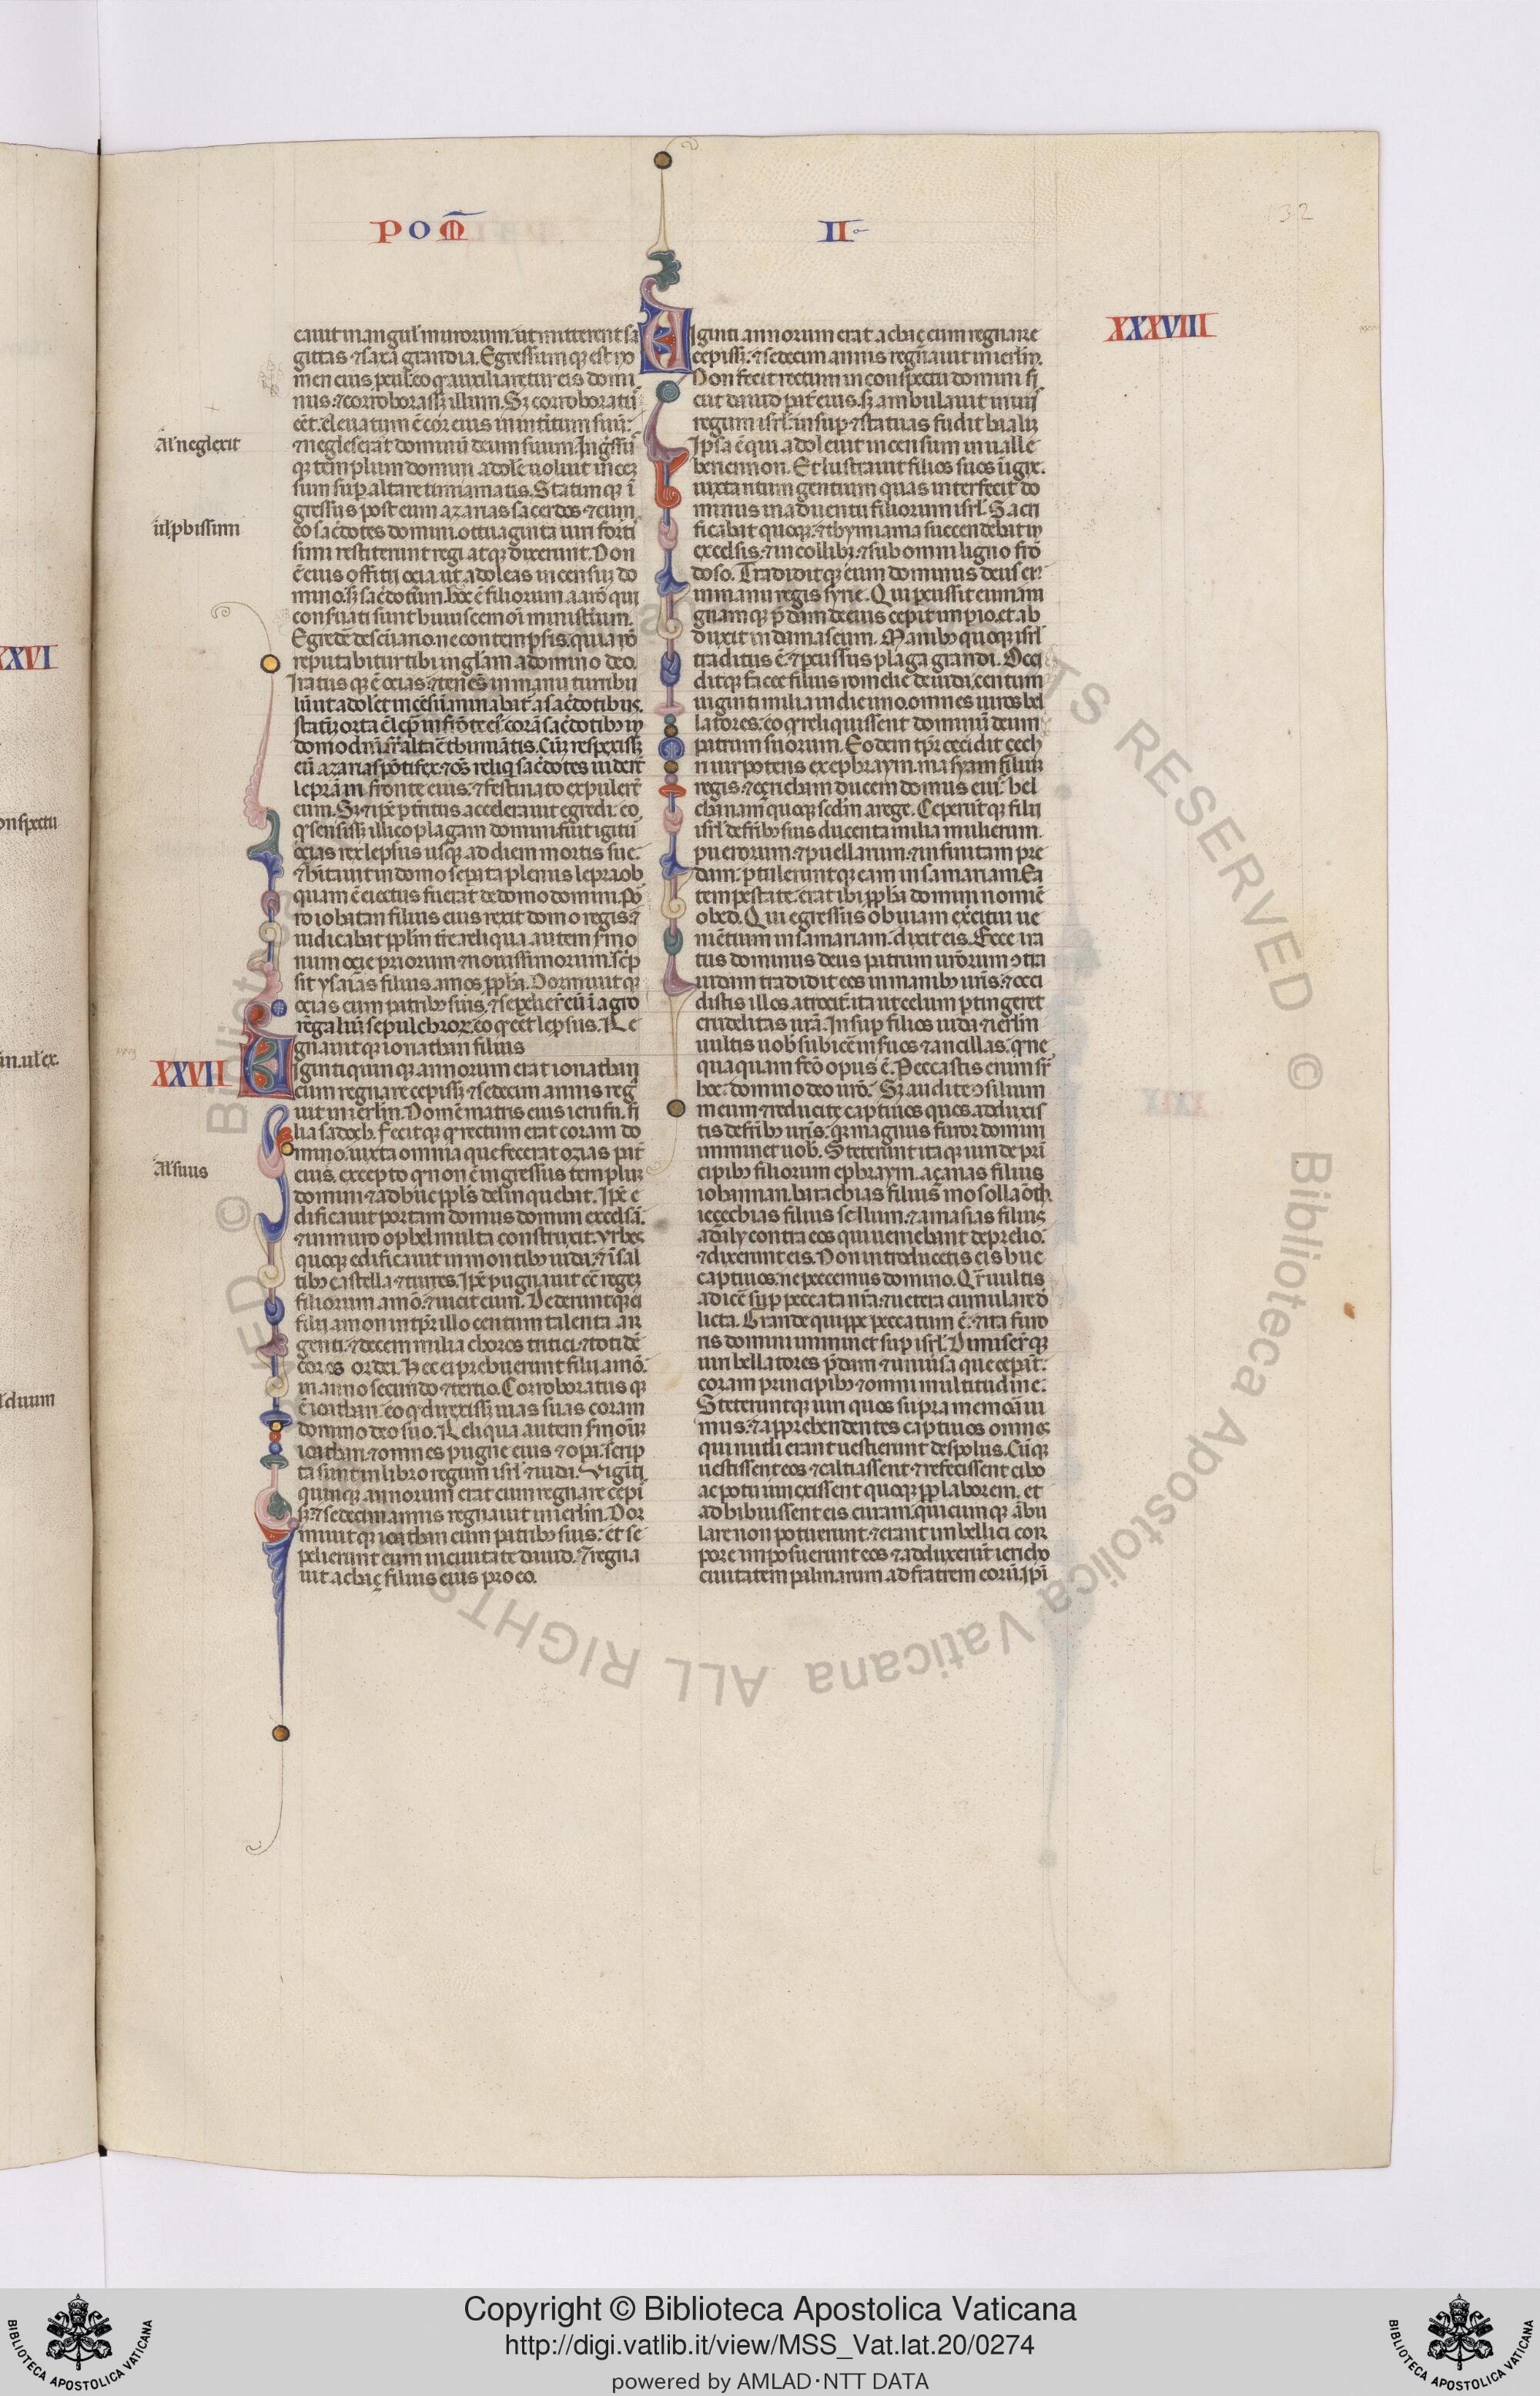 POM̄
II
132
XXXVIII
cauit in angul' murorum. ut mitterent sa
gittas ⁊ saxa grandia. Egressum que est no
men eius procul eo qd auxiliaretur eis domi
nus. ⁊ corroborass; illum. Sz corroboratus
eēt. eleuatum ē cor eius in interitum suum:
⁊ neglexerat dominū deum suum. Ingressus
q; templum domini adolē uoluit incen
sum sup altare timiamatis. Statimq; in
gressus post eum azarias sacerdos ⁊ cum
eo sacdotes domini. octuaginta uiri forti
simi restiterunt regi atq; dixerunt. Non
ē eius offitii ocia. ut adoleas incensuz do
mino. sz sacdotum. hoc ē filiorum aarō qui
consecrati sunt huiuscemodi ministerium.
Egredē de scuario. ne contempseris. quia nō
reputabitur tibi in glām a domino deo.
Iratus que ē ocias. ⁊ tenēs in manu turribu
lū ut adolet incēsū minabat' a sacdotibus.
statī orta ē lep in frōte eī corā sacdotib; in
domo dnī sr altā ē thimiātis. Cūz respexiss;
eū azarias pōtifex. ⁊ oēs reliq sacdotes uider̄t
leprām in fronte eius. ⁊ festinato expuler̄t
eum. Sz ⁊ ipē pterritus accelerauit egredi. eo
q sensiss; illico plagam domini. fuit igitur
ocias rex leprosus usq; ad diem mortis sue.
⁊ hitauit in domo sepata plenus lepra ob
quam ē eiectus fuerat de domo domini. Por
ro iobatan filius eius rexit domo regis. ⁊
iudicabat pplm tre. reliqua autem smo
num ocie priorum ⁊ nouissimorum. scrip
sit ysaias filius amos ppha. Dormiuit q;
ocias cum patrib; suis. ⁊ sepelier̄ eū i agro
regaliū sepulchroz. eo q eēt leprosus. Re
gnauit que ionathan filius
XXVII
Viginti quinq; annorum erat ionathan
cum regnare cepiss; ⁊ sedecim annis regn
uit in ierlm. Nomē matris eius ierusa. fi
lia sadoch. Fecitq; q rectum erat coram do
mino. iuxta omnia que fecerat ozias pat̄
eius. excepto q non ē ingressus templuz
domini. ⁊ adhuc ppls delinquebat. Ipē e
dificauit portam domus domini excelsā.
⁊ in muro ophel multa construxit. Vrbes
quoq; edificauit in montib; iuda. ⁊ i sal
tib; castella ⁊ turres. Ipē pugnauit cō regez
filiorum amō. ⁊ uicit eum. Dederuntq; ei
filii amon in tpr illo centum talenta ar
genti. ⁊ decem milia choros tritici. ⁊ totidē
coros ordei. Hec ei prebuerunt filii amō.
in anno secundo ⁊ tertio. Corroboratus q;
ē ioathan. eo q direxiss; uias suas coram
domino deo suo. Reliqua autem smonuz
ioathan. ⁊ omnes pugne eius ⁊ opa. scrip
ta sunt in libro regum isrl ⁊ iuda. Viginti
quinq; annorum erat cum regnare cepi
ss; ⁊ sedecim annis regnauit in ierlm. Dor
miuit q; ioathan cum patrib; suis. et se
pelierunt eum in ciuitate dauid. ⁊ regna
uit achaç filius eius pro eo.
Viginti annorum erat achaç cum regnare
cepiss;. ⁊ sedecim annis regnauit in ierlm.
Non fecit rectum in conspectu domini si
cut dauid pat̄ eius. sz ambulauit in uiis
regum isrl. insup ⁊ statuas fudit bializ
Ipsa ē qui adoleuit incensum in ualle
benennon. Et lustrauit filios suos i igne.
iuxta ritum gentium quas interfecit do
minus in aduentu filiorum isrl. Sacri
ficabat quoq; ⁊ thymiama succendebat in
excelsis. ⁊ in collib;. ⁊ sub omni ligno frō
doso. Tradiditq; eum dominus deus eī
in manu regis syrie. Qui pcussit eum m̄
gnamq; pdam de eius cepit impio. et ab
duxit in damascum. Manib; quoq; isrl
traditus ē. ⁊ pcussus plaga grandi. Occi
ditq; facee filius romelie de iuda. centum
uiginti milia in die uno. omnes uiros bel
latores. eo q reliquissent dominū deum
patrum suorum. Eodem tpr cecidit cech
ri uir potens ex ephraym. masyam filiuz
regis. ⁊ eçricham ducem domus eiu. hel
chanam quoq; scdm a rege. Ceperuntq; filii
isrl de frib; suis ducenta milia mulierum.
puerorum. ⁊ puellarum. ⁊ infinitam pre
dam. ptulerunt q; eam in samariam. Ea
tempestate. erat ibi ppha domini nomie
obed. Qui egressus obuiam exercitui ue
niētium in samariam. dixit eis. Ecce ira
tus dominus deus patrum urōrum ɔtra
iudam tradidit eos in manib; uris. ⁊ occi
distis illos atrocit. ita ut celum ptingeret
crudelitas urā. Insup filios iuda ⁊ ierlm
uultis uob subicē in suos ⁊ ancillas. q ne
quaquam fcō opus ē. Peccastis enim sr
hoc domino deo urō. Sz audite ɔsilium
meum ⁊ reducite captiuos quos adduxis
tis de frib; uris. qz magnus furor domini
imminet uob. Steterunt itaq; uiri de pri
cipib; filiorum ephraym. açarias filius
iohannan. barachias filius mosollamōth.
ieçechias filius sellum. ⁊ amasias filius
adaly contra eos qui ueniebant de prelio.
⁊ dixerunt eis. Non introducetis eis huc
captiuos. ne peccemus domino. Qr uultis
adicē sup peccata nrā. ⁊ uetera cumulare d
licta. Grande quippe peccatum ē. ⁊ ira furo
ris domini imminet sup isrl. Dimiserq;
uiri bellatores pdam ⁊ uniuisa que cepant.
coram principib; ⁊ omni multitudine.
Steteruntq; uiri quos supra memoāui
mus. ⁊ apprehendentes captiuos omnes
qui nudi erant uestierunt de spoliis. Cūq;
uestissent eos ⁊ calciassent ⁊ refecissent cibo
ac potu unxissent quoq; pp laborem. et
adhibuissent eis curam. quicumq; ābu
lare non poterunt. ⁊ erant imbellici cor
pore imposuerunt eos ⁊ adduxerūt iericho
ciuitatem palmarum ad fratrem eorū. ipi
Al' neglexit
Al' suus
XXVI
onspectu
in. ul' ex.
duum
Copyright © Biblioteca Apostolica Vaticana
http://digi.vatlib.it/view/MSS_Vat.lat.20/0274
powered by AMLAD·NTT DATA
BIBLIOTECA APOSTOLICA VATICANA
BIBLIOTECA APOSTOLICA VATICANA
© Biblioteca Apostolica Vaticana ALL RIGHTS RESERVED